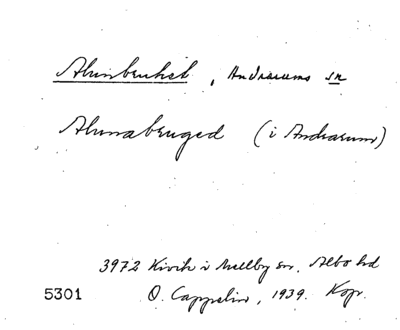 Alunbruket, Andrarums sn
Alunabruged (i Andrarum)
3972 Kivik i Mellby sn. Albo hd
5301 O. Cappelin, 1939. Kop.